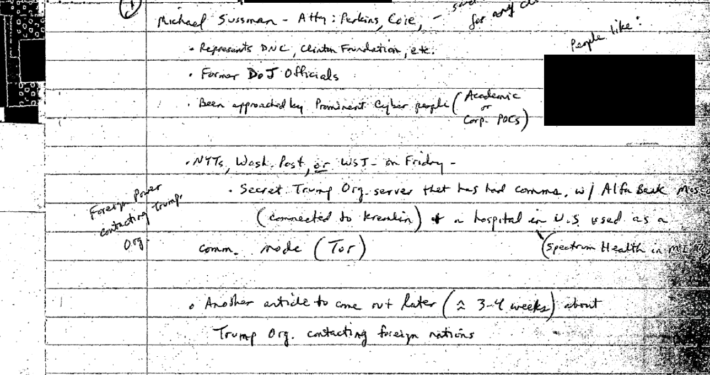 ①
Michael Sussman - Atty: Perkins, Coie, - said
for any cl
• Represents DNC, Clinton Foundation, etc.
People like:
• Former DoJ Officials
• Been approached by Prominent Cyber people (Academic
or
Corp. POCs)
• NYTs, Wash. Post, or WSJ - on Friday -
• Secret Trump Org. server that has had comms. w/ Alfa Bank
Foreign Power
contacting Trump
Org
(connected to Kremlin) + a hospital in U.S. used as a
comm. node (Tor)
(Spectrum Health in
• Another article to come out later (≈ 3-4 weeks) about
Trump Org. contacting foreign nations